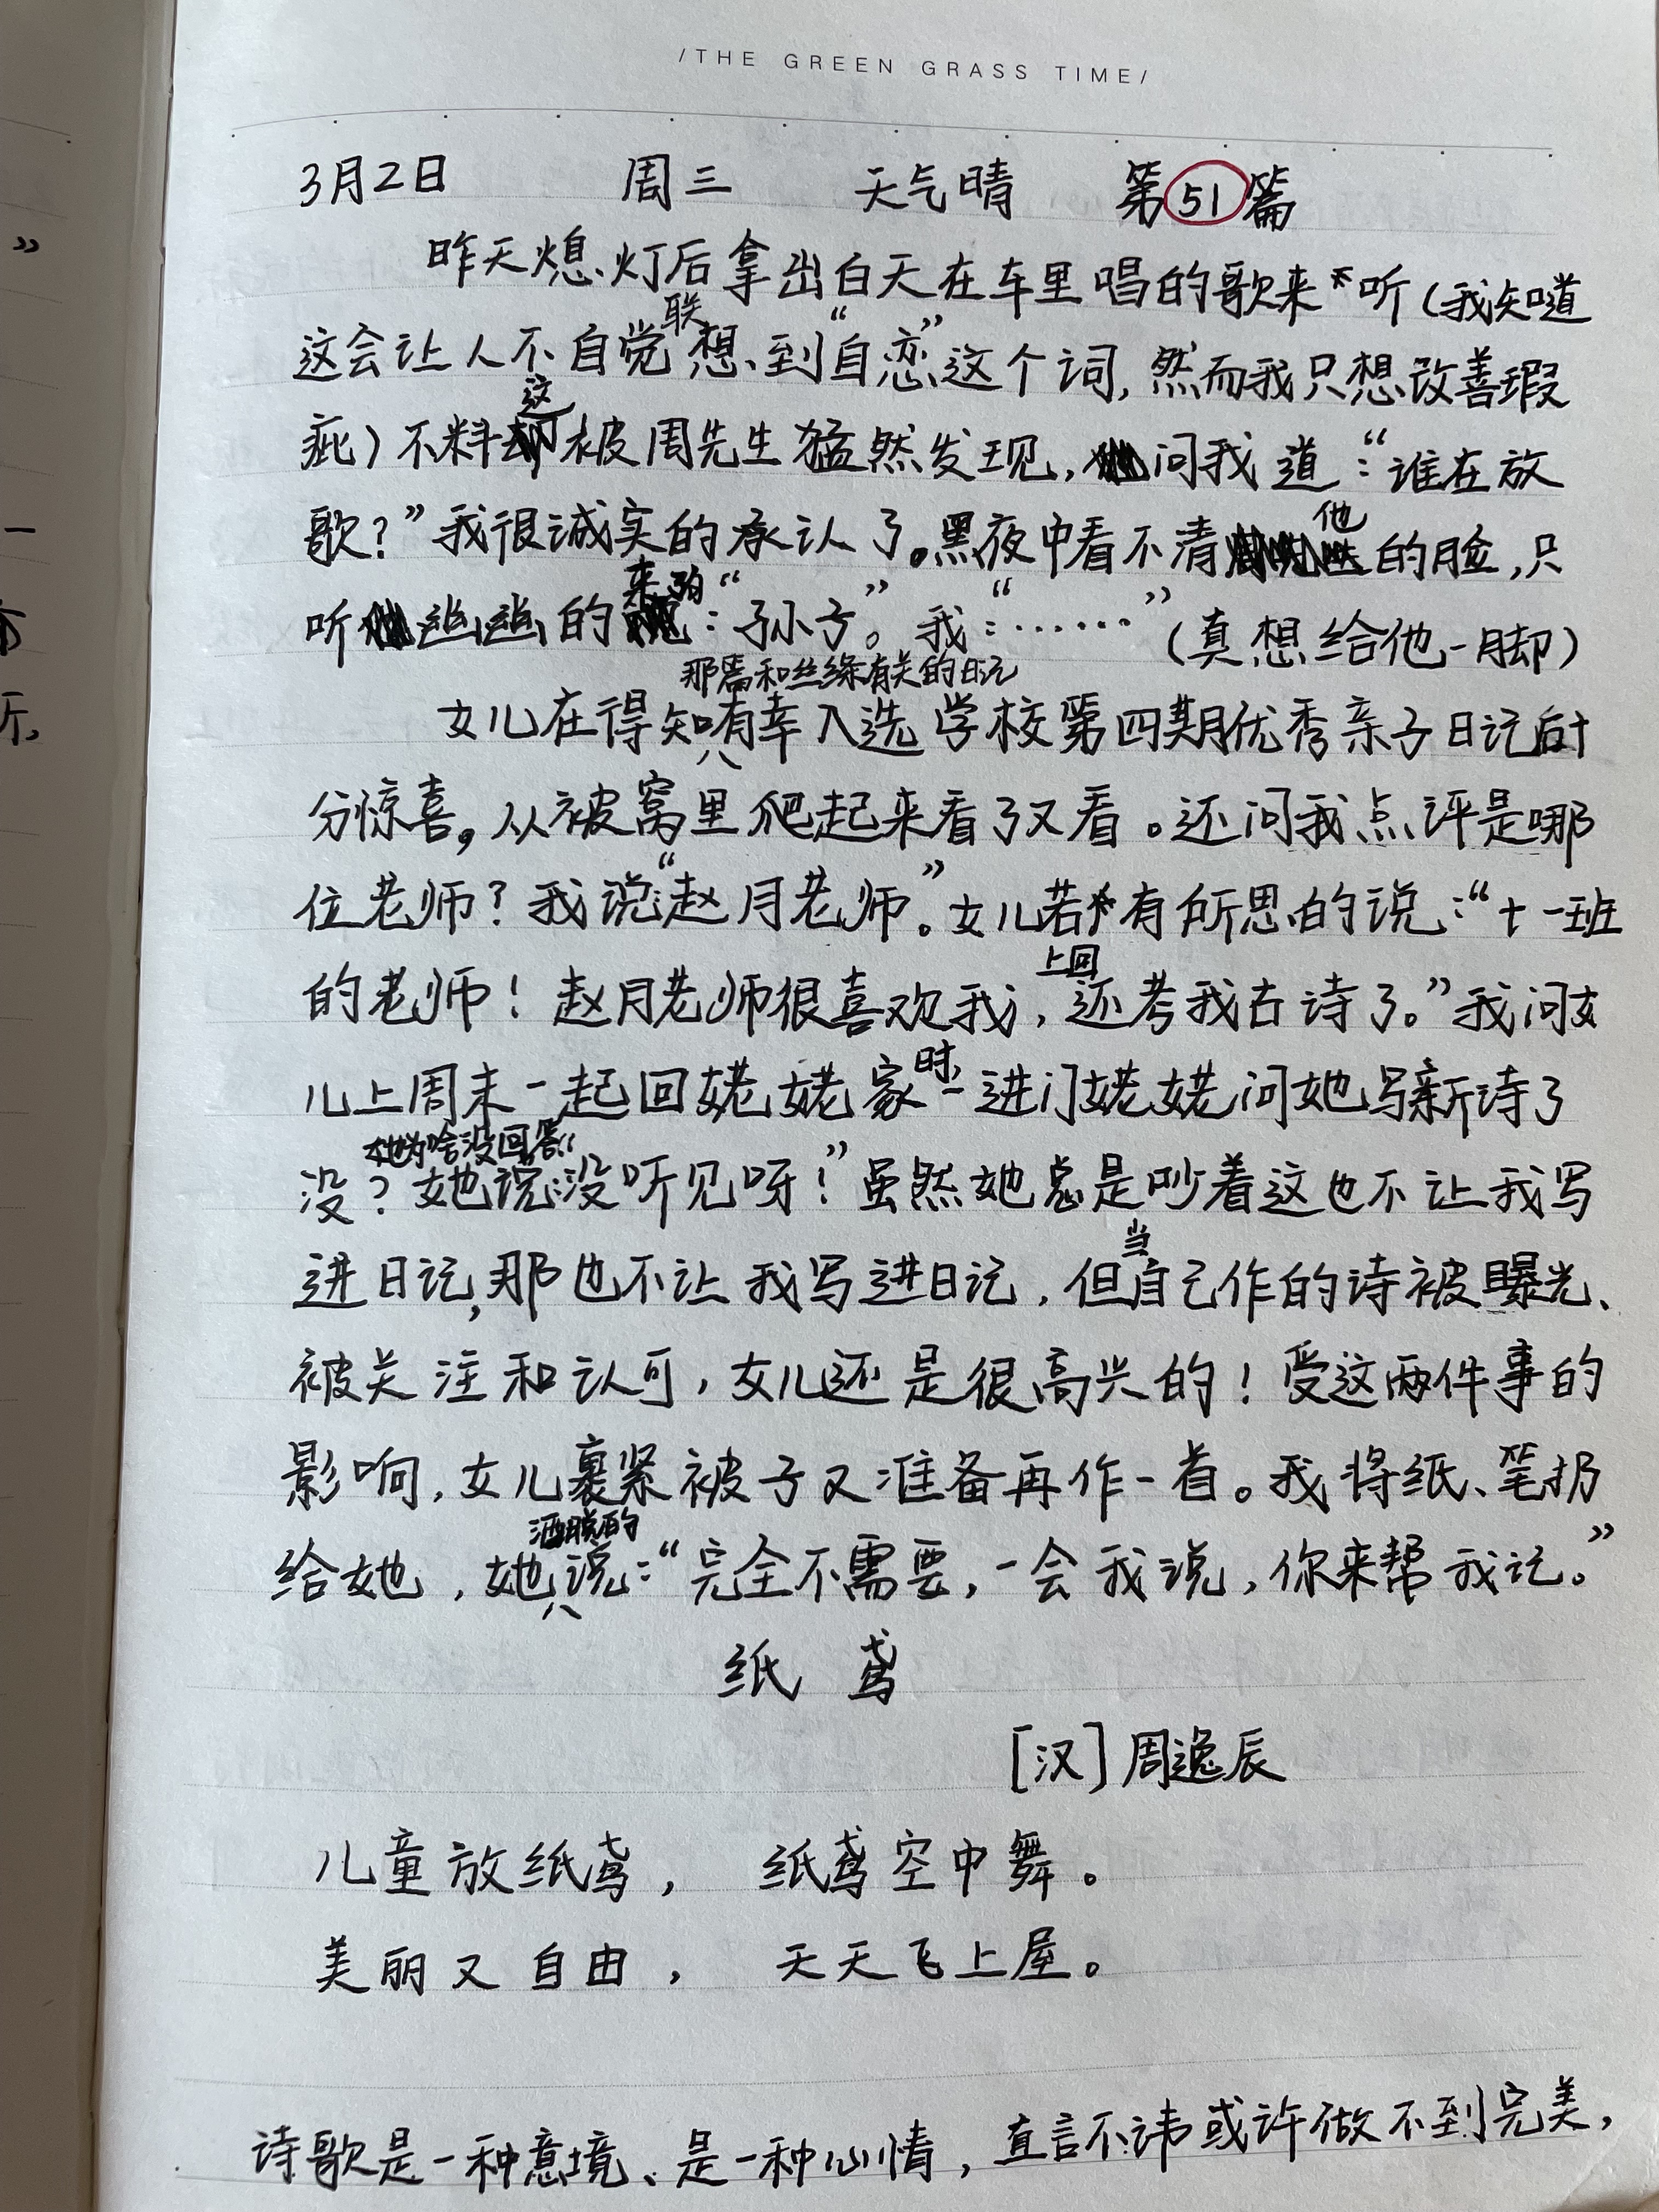 /THE GREEN GRASS TIME/
3月2日 周三 天气晴 第51篇
昨天熄灯后拿出白天在车里唱的歌来听(我知道
这会让人不自觉联想到“自恋”这个词,然而我只想改善瑕
疵)不料这被周先生猛然发现,问我道:“谁在放
歌?”我很诚实的承认了。黑夜中看不清他的脸,只
听幽幽的来句:“孙子”。我:“……”(真想给他一脚)
那篇和丝绦有关的日记
女儿在得知有幸入选学校第四期优秀亲子日记后十
分惊喜,从被窝里爬起来看了又看。还问我点评是哪
位老师?我说“赵月老师”。女儿若有所思的说:“十一班
的老师!赵月老师很喜欢我,上回还考我古诗了。”我问女
儿上周末一起回姥姥家时一进门姥姥问她写新诗了
没?她为啥没回答,她说:“没听见呀!”虽然她总是吵着这也不让我写
进日记,那也不让我写进日记,但当自己作的诗被曝光、
被关注和认可,女儿还是很高兴的!受这两件事的
影响,女儿裹紧被子又准备再作一首。我将纸、笔扔
给她,她洒脱的说:“完全不需要,一会我说,你来帮我记。”
纸鸢
[汉]周逸辰
儿童放纸鸢, 纸鸢空中舞。
美丽又自由, 天天飞上屋。
诗歌是一种意境、是一种心情,直言不讳或许做不到完美,
”
一